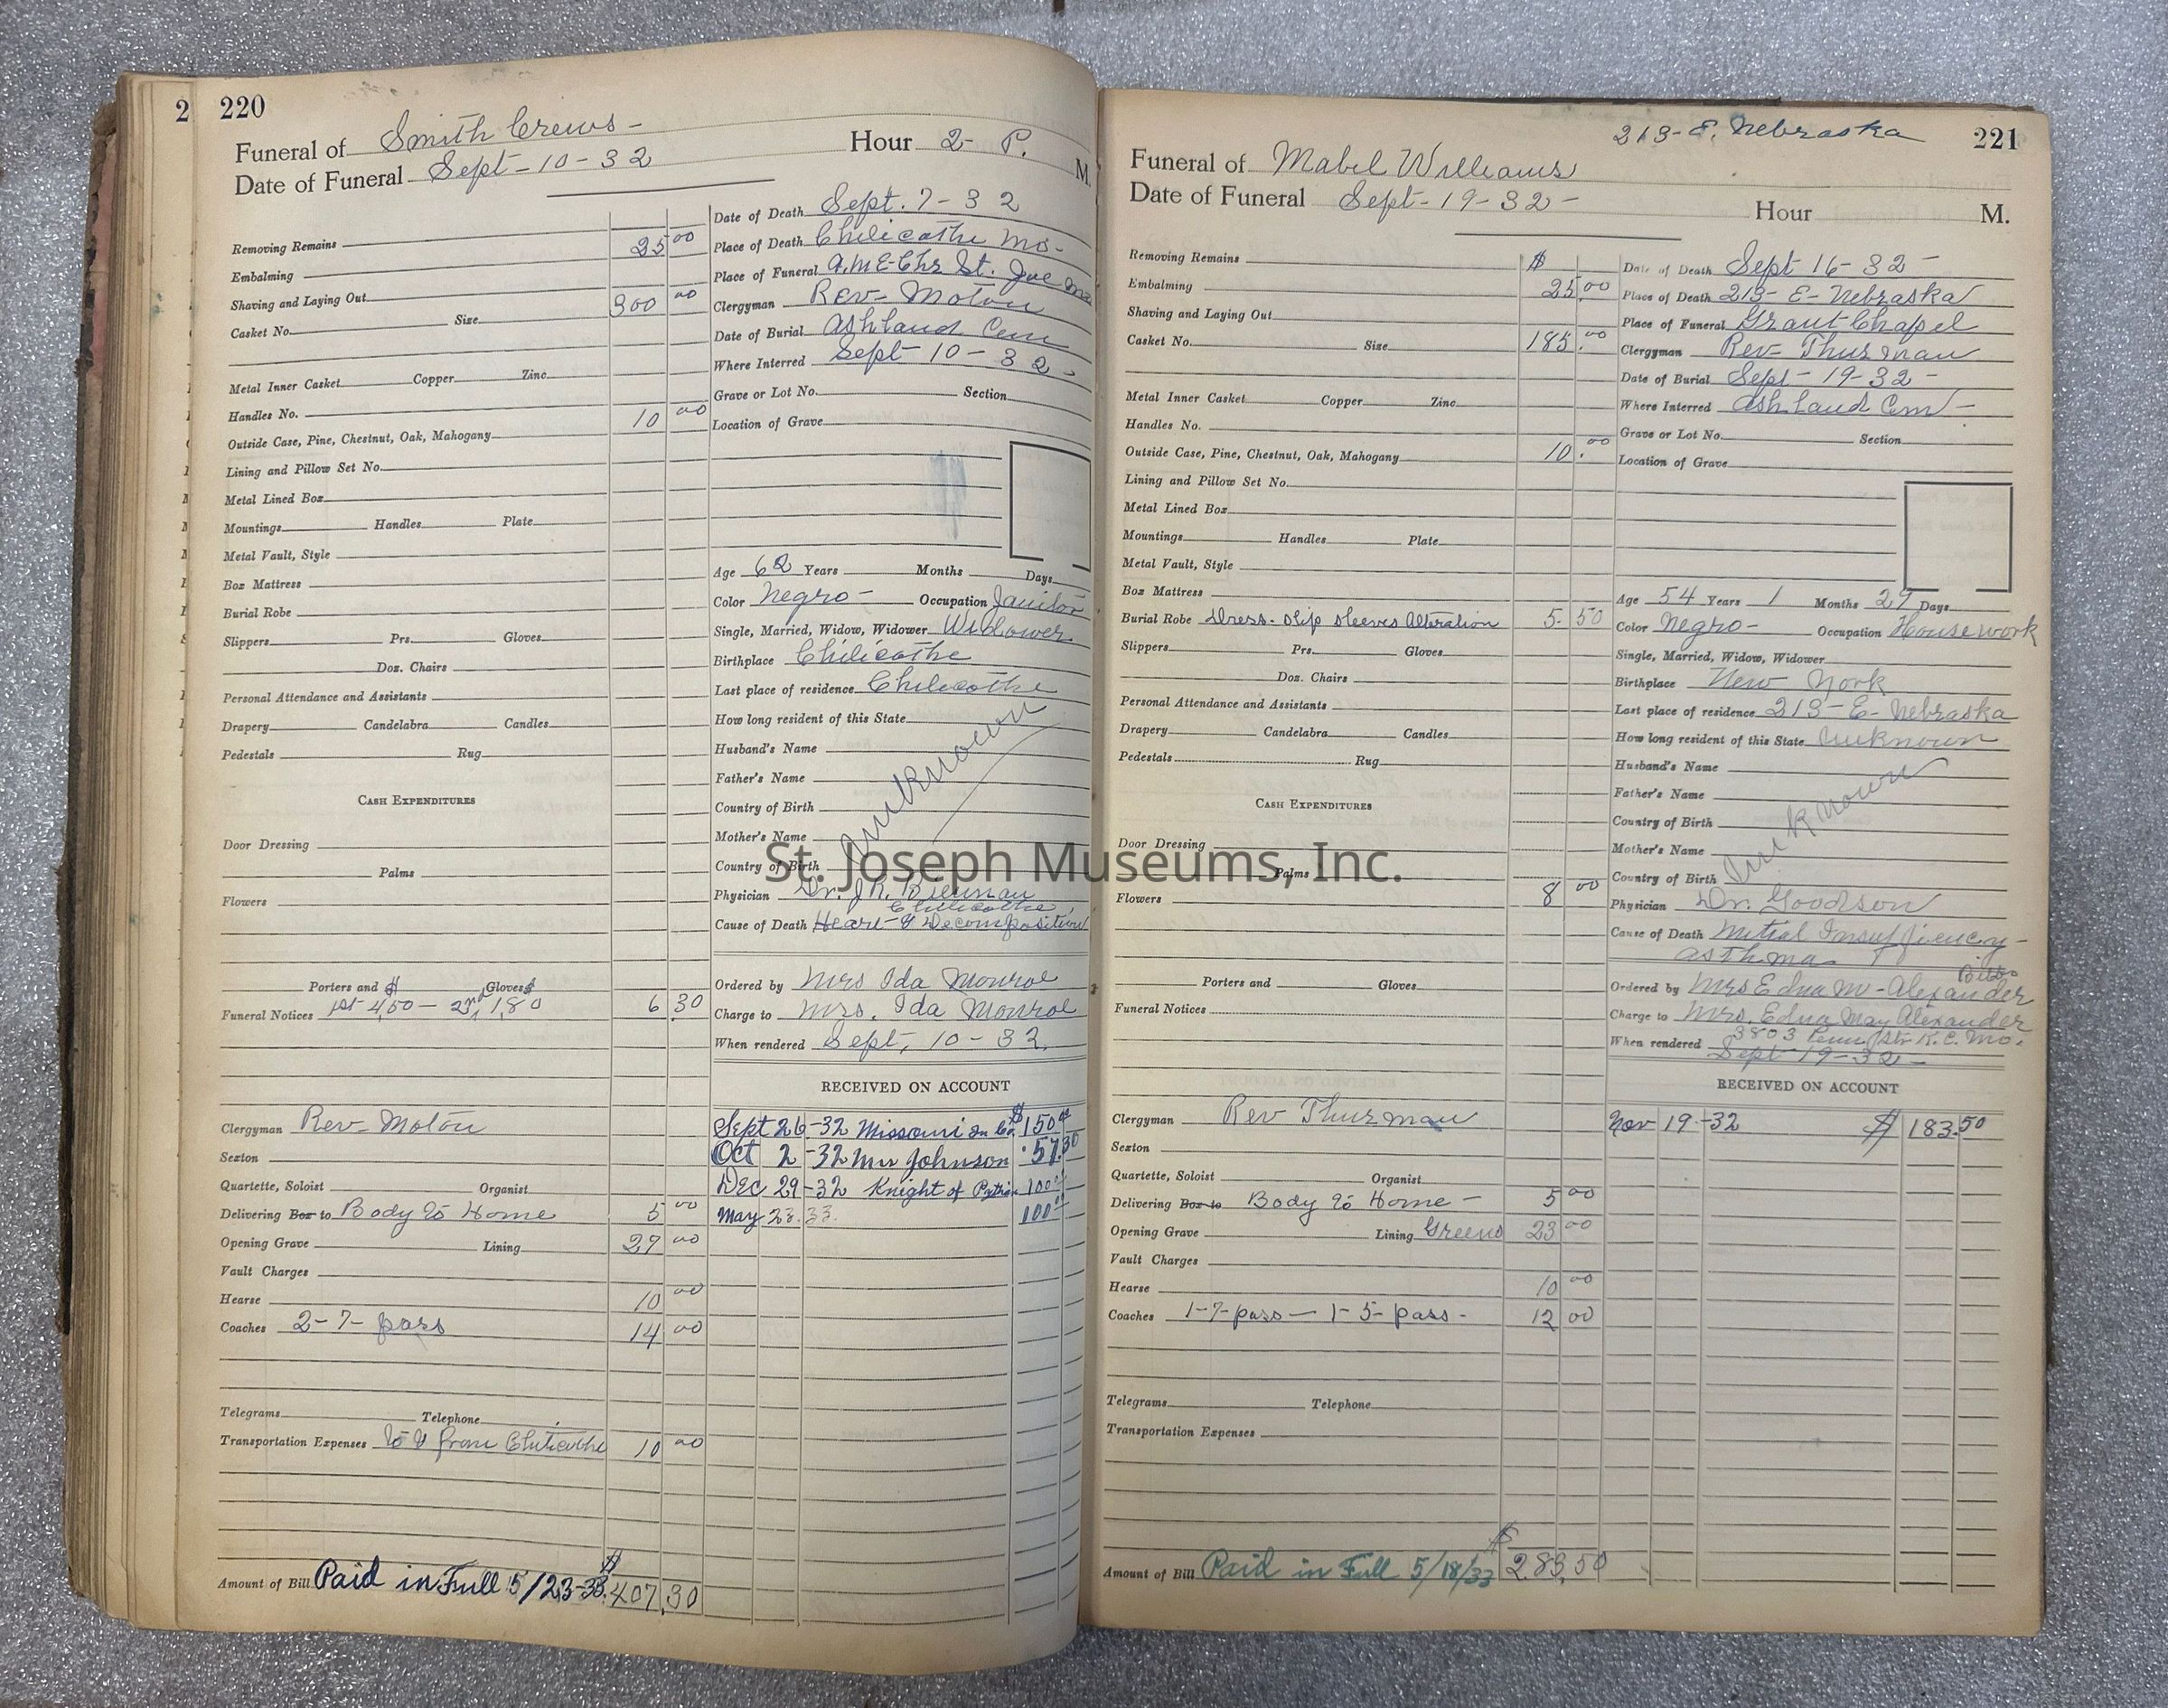 2 220
Funeral of Smith Crews - Hour 2- P. M.
Date of Funeral Sept - 10 - 32
Removing Remains
Embalming 25 00
Shaving and Laying Out
Casket No. Size 300 00
Metal Inner Casket Copper Zinc
Handles No.
Outside Case, Pine, Chestnut, Oak, Mahogany 10 00
Lining and Pillow Set No.
Metal Lined Box
Mountings Handles Plate
Metal Vault, Style
Box Mattress
Burial Robe
Slippers Prs. Gloves
Doz. Chairs
Personal Attendance and Assistants
Drapery Candelabra Candles
Pedestals Rug
CASH EXPENDITURES
Door Dressing
Palms
Flowers
Porters and $ Gloves $
Funeral Notices 1st 4,50 - 2nd, 1,80 6 30
Clergyman Rev- Moton
Sexton
Quartette, Soloist Organist
Delivering Box to Body To Home 5 00
Opening Grave Lining 27 00
Vault Charges
Hearse 10 00
Coaches 2-7- pass 14 00
Telegrams Telephone
Transportation Expenses To & from Chilicothe 10 00
Amount of Bill Paid in Full 5/23-33. $ 407.30
Date of Death Sept. 7 - 32
Place of Death Chilicothe Mo-
Place of Funeral A.M.E. Chr St. Joe Mo
Clergyman Rev- Moton
Date of Burial Ashland Cem
Where Interred Sept - 10 - 32 -
Grave or Lot No. Section
Location of Grave
Age 62 Years Months Days
Color Negro - Occupation Janitor
Single, Married, Widow, Widower Widower
Birthplace Chilicothe
Last place of residence Chilicothe
How long resident of this State
Husband's Name
Father's Name
Country of Birth
Unknown
Mother's Name
Country of Birth
Physician Dr. J.R. Brennan
Chilicothe,
Cause of Death Heart - & Decomposition
Ordered by Mrs Ida Monroe
Charge to Mrs. Ida Monroe
When rendered Sept, 10 - 32.
RECEIVED ON ACCOUNT
Sept 26 -32 Missouri In Co. $ 150 00
Oct 2 -32 Mrs Johnson 57.30
Dec 29 -32 Knight of Pythian 100 00
May 23. 33. 100 00
213 - E. Nebraska 221
Funeral of Mabel Williams
Date of Funeral Sept - 19 - 32 - Hour M.
Removing Remains $
Embalming 25.00
Shaving and Laying Out
Casket No. Size 185.00
Metal Inner Casket Copper Zinc
Handles No.
Outside Case, Pine, Chestnut, Oak, Mahogany 10.00
Lining and Pillow Set No.
Metal Lined Box
Mountings Handles Plate
Metal Vault, Style
Box Mattress
Burial Robe Dress- Slip Sleeves Alteration 5. 50
Slippers Prs. Gloves
Doz. Chairs
Personal Attendance and Assistants
Drapery Candelabra Candles
Pedestals Rug
CASH EXPENDITURES
Door Dressing
Palms
Flowers 8 00
Porters and Gloves
Funeral Notices
Clergyman Rev Thurman
Sexton
Quartette, Soloist Organist
Delivering Box to Body To Home - 5 00
Opening Grave Lining Greens 23 00
Vault Charges
Hearse 10 00
Coaches 1-7-pass - 1-5- pass - 12 00
Telegrams Telephone
Transportation Expenses
Amount of Bill Paid in Full 5/18/33 $ 283,50
Date of Death Sept 16 - 32 -
Place of Death 213 - E - Nebraska
Place of Funeral Grant Chapel
Clergyman Rev- Thurman
Date of Burial Sept - 19 - 32 -
Where Interred Ashland Cem -
Grave or Lot No. Section
Location of Grave
Age 54 Years 1 Months 27 Days
Color Negro - Occupation Housework
Single, Married, Widow, Widower
Birthplace New York
Last place of residence 213 - E - Nebraska
How long resident of this State Unknown
Husband's Name
Father's Name
Country of Birth
Unknown
Mother's Name
Country of Birth
Physician Dr. Goodson
Cause of Death Mitral Insufficiency -
Asthma
Ordered by Mrs Edna M - Alexander
Charge to Mrs. Edna May Alexander
3803 Penn Str K.C. Mo.
When rendered Sept 19 - 32 -
RECEIVED ON ACCOUNT
Nov 19 -32 $ 183.50
St. Joseph Museums, Inc.